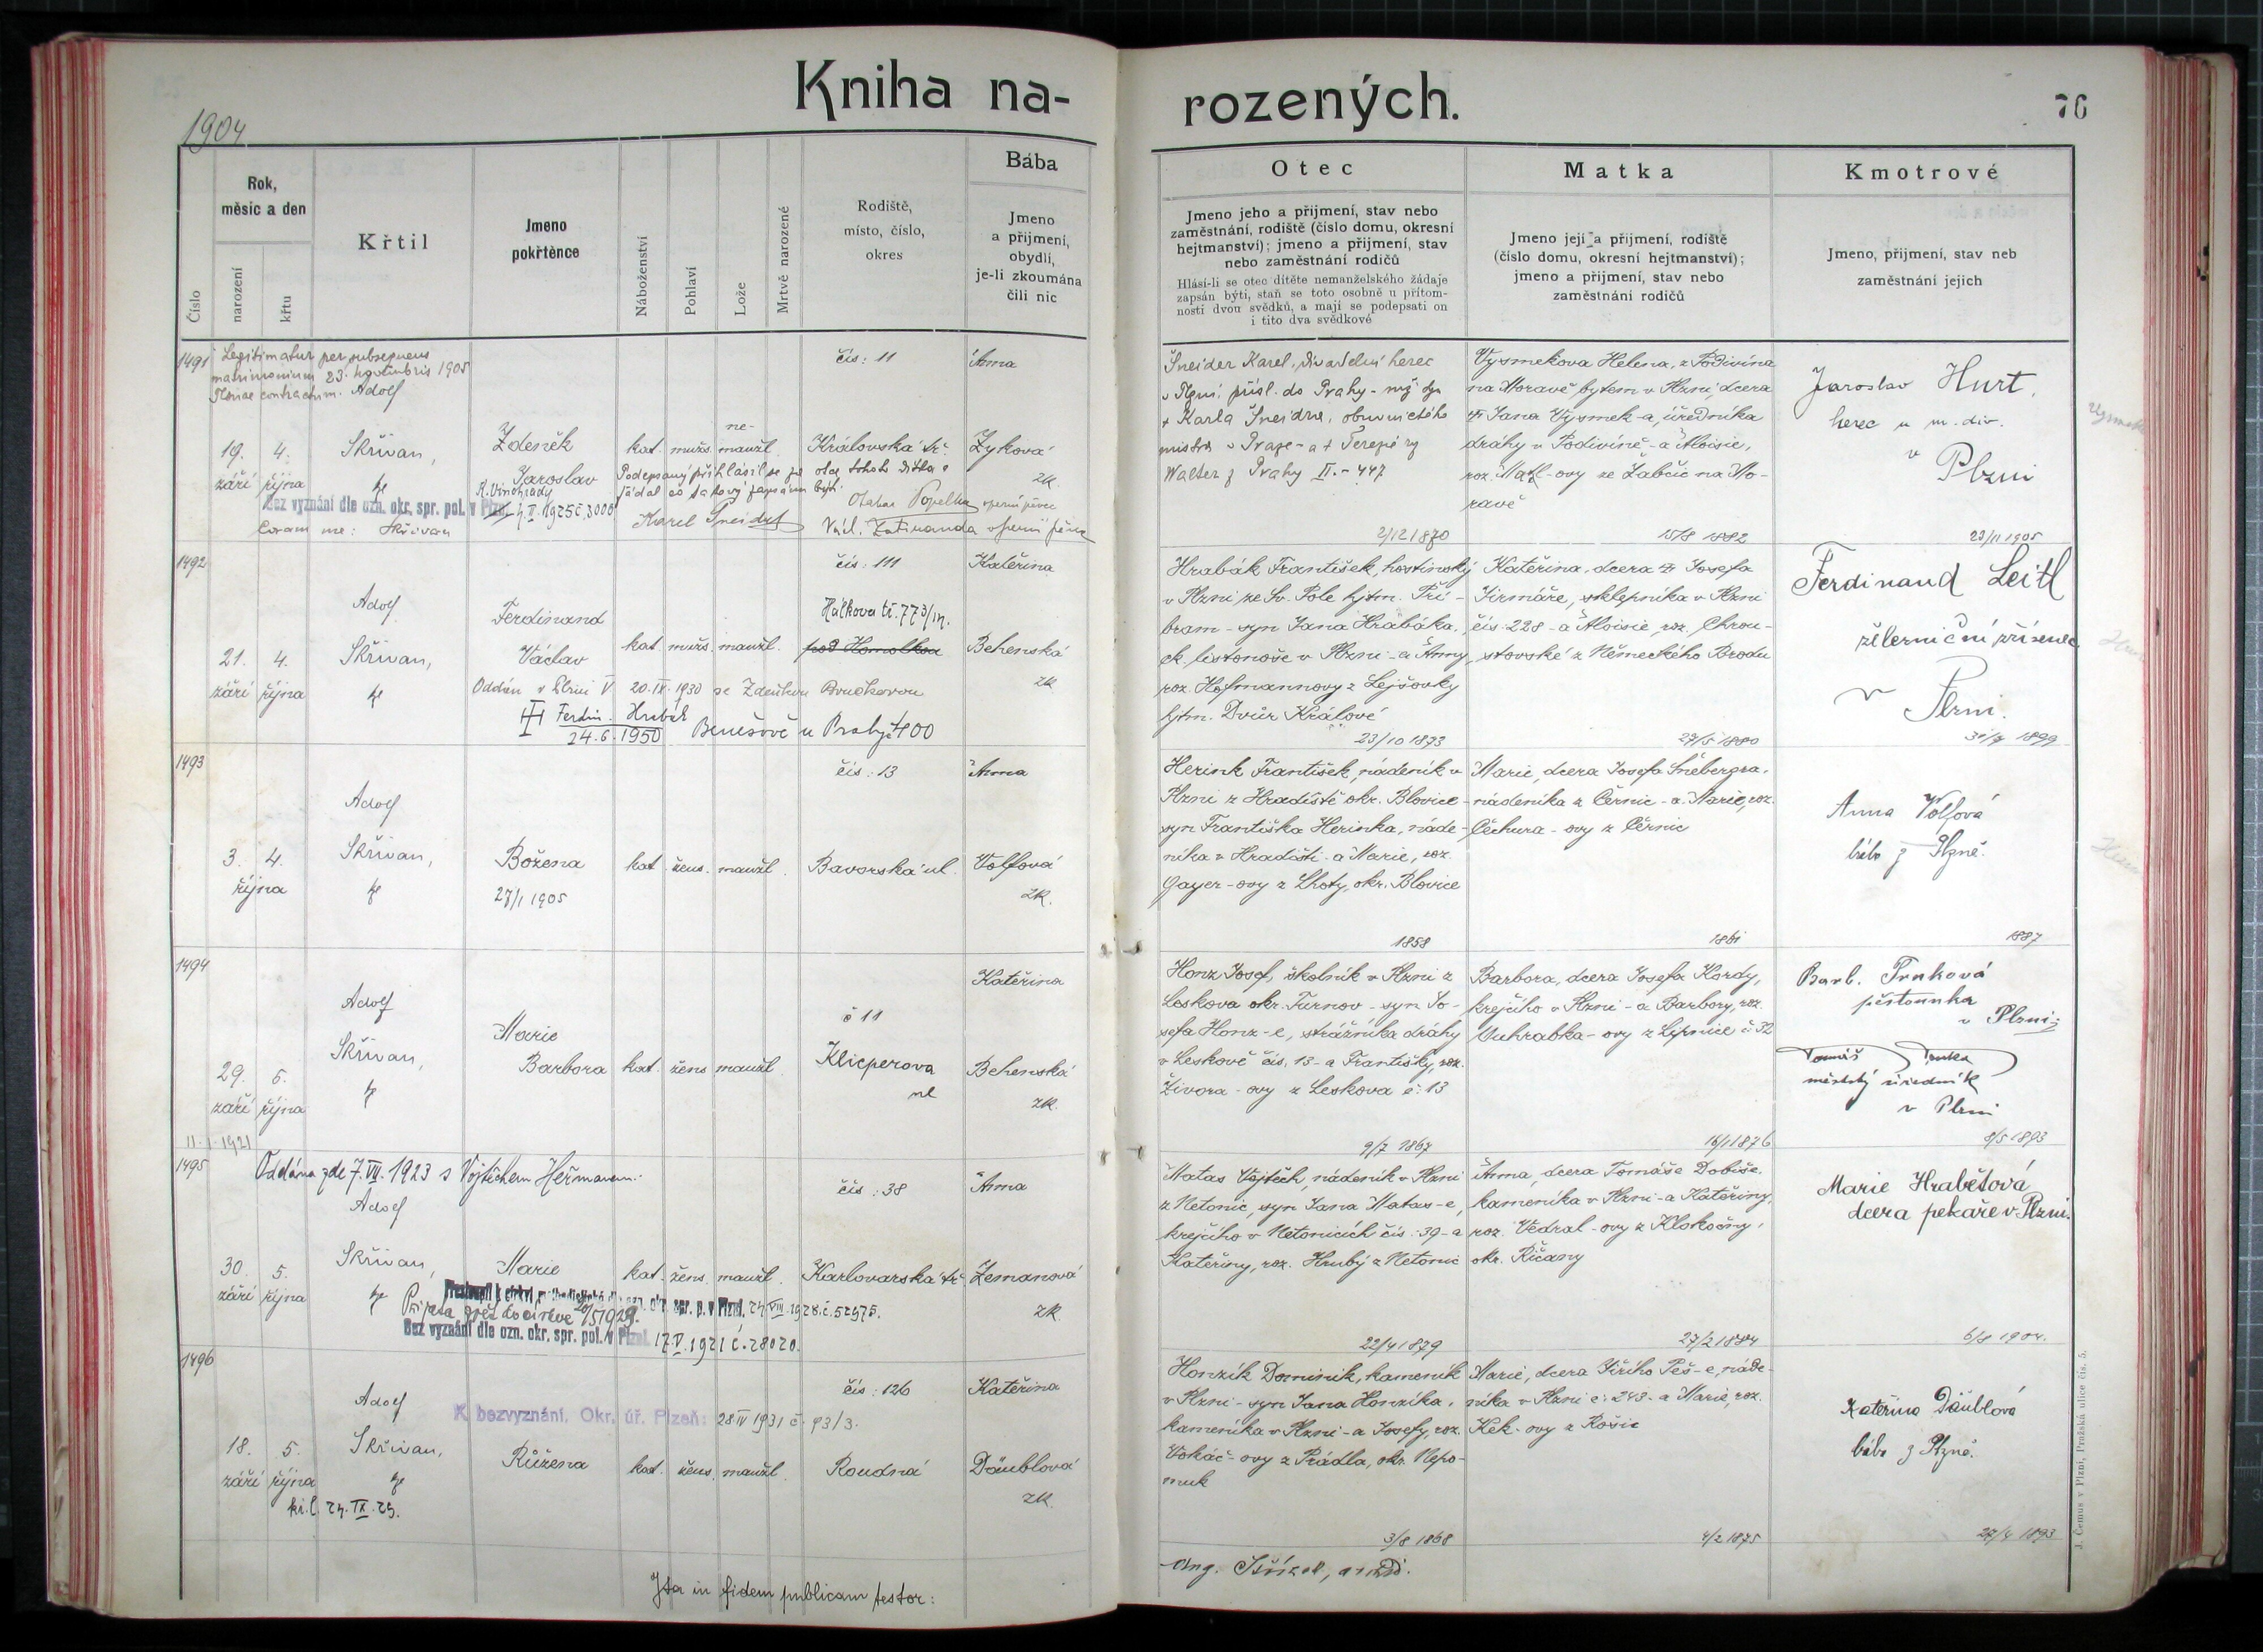 Kniha na-
rozených.
76
1904
Číslo
Rok,
měsíc a den
narození
křtu
Křtil
Jmeno
pokřtěnce
Náboženství
Pohlaví
Lože
Mrtvě narozené
Rodiště,
místo, číslo,
okres
Bába
Jmeno
a přijmení,
obydlí,
je-li zkoumána
čili nic
Otec
Jmeno jeho a přijmení, stav nebo
zaměstnání, rodiště (číslo domu, okresní
hejtmanství); jmeno a přijmení, stav
nebo zaměstnání rodičů
Hlásí-li se otec dítěte nemanželského žádaje
zapsán býti, staň se toto osobně u přítom-
nosti dvou svědků, a mají se podepsati on
i tito dva svědkové
Matka
Jmeno její a přijmení, rodiště
(číslo domu, okresní hejtmanství);
jmeno a přijmení, stav nebo
zaměstnání rodičů
Kmotrové
Jmeno, přijmení, stav neb
zaměstnání jejich
1491
Legitimatur per subsequens
matrimonium 23. novembris 1905
Plsnae contractum. Adolf
19. září
4. října
Skřivan,
Zdeněk
Jaroslav
kat. mužs. ne-manžl.
čís: 11
Královská tř.
Anna
Zyková
zk.
Podepsaný přihlásil se za otce tohoto dítka a
žádal co takový zapsán býti.
K. Vinohrady
Bez vyznání dle ozn. okr. spr. pol. v Plzni 4. II. 1925 č. 3000
Karel Šneider
Otakar Popelka operní pěvec
coram me: Skřivan
Šneider Karel, divadelní herec
v Plzni, přísl. do Prahy - syn
+ Karla Šneidra, obuvnického
mistra v Praze - a + Terezie
Walter z Prahy II. - 447
2/12 1870
Vysmekova Helena, z Podivína
na Moravě bytem v Plzni, dcera
Jana Vysmek-a, úředníka
dráhy v Podivíně - a Aloisie,
ze Žabčic na Mo-
ravě
15/8 1882
Jaroslav Hurt,
herec u m. div.
v
Plzni
23/11 1905
1492
21. září
4. října
Adolf
Skřivan,
Ferdinand
Václav
kat. mužs. manžl.
čís: 111
Hálkova tř. 773/III.
pod Homolkou
Kateřina
Behenská
zk.
Oddán v Plzni V 20. IX. 1930 se Zdeňkou Bručkovou
Ferdin. Hrabák
24. 6. 1950 Benešově u Prahy č. 400
Hrabák František, hostinský
v Plzni, ze Sv. Pole hjtm. Pří-
bram - syn Jana Hrabáka,
listonoše v Plzni - a Anny
roz. Hofmannovy z Lejšovky
hjtm. Dvůr Králové
23/10 1873
Kateřina, dcera Josefa
Jirmáře, sklepníka v Plzni
čís: 228 - a Aloisie, roz. Chrou-
stovské z Německého Brodu
27/5 1880
Ferdinand Leitl
železniční zřízenec
v
Plzni.
1899
1493
3. 4.
října
Adolf
Skřivan,
Božena
27/1 1905
kat. žens. manžl.
čís: 13
Bavorská ul.
Anna
Volfová
zk.
Herink František, nádeník v
Plzni z Hradiště okr. Blovice -
syn Františka Herinka, náde-
níka v Hradišti - a Marie, roz.
Gayer-ovy z Lhoty, okr. Blovice
1858
Marie, dcera Josefa Šnebergra,
nádeníka z Černic - a Marie, roz.
Čechura-ovy z Černic
1861
Anna Volfová
bába z Plzně.
1887
1494
29. září
5. října
Adolf
Skřivan,
Marie
Barbora
kat. žens. manžl.
č 11
Klicperova
ul
Kateřina
Behenská
zk.
11. I. 1921
Honz Josef, školník v Plzni z
Leskova okr. Turnov - syn Jo-
sefa Honz-e, strážníka dráhy
v Leskově čís. 13 - a Františky, roz.
Živora-ovy z Leskova č: 13
9/7 1867
Barbora, dcera Josefa Kordy,
krejčího v Plzni - a Barbory, roz.
Vuhrabka-ovy z Lipnice č: 32
16/1 1876
Barb. Trnková
pěstounka
v Plzni;
Tomáš Trnka
městský úředník
v Plzni
8/5 1893
1495
Oddána zde 7. VII. 1923 s Vojtěchem Heřmanem.
30. září
5. října
Adolf
Skřivan,
Marie
kat. žens. manžl.
čís: 38
Karlovarská tř.
Anna
Zemanová
zk.
ozn. okr. spr. p. v Plzni. 24. VIII. 1928. č. 52975.
Přijata zpět do církve 20/5 1929.
Bez vyznání dle ozn. okr. spr. pol. v Plzni 17. V. 1921 č. 28020.
Matas Vojtěch, nádeník v Plzni
z Netonic, syn Jana Matas-e,
krejčího v Netonicích čís: 39 - a
Kateřiny, roz. Hrubý z Netonic
22/4 1879
Anna, dcera Tomáše Dobiše,
kameníka v Plzni - a Kateřiny,
roz. Vedral-ovy z Klokočny,
okr. Říčany
27/2 1884
Marie Hrabětová
dcera pekaře v Plzni.
6/8 1904.
1496
18. září
5. října
Adolf
Skřivan,
K bezvyznání. Okr. úř. Plzeň: 28 IV 1931 č. 93/3.
Růžena
kat. žens. manžl.
čís: 126
Roudná
Kateřina
Däublová
zk.
kř. l. 24. IX. 25.
Honzík Dominik, kameník
v Plzni - syn Jana Honzíka,
kameníka v Plzni - a Josefy, roz.
Vokáč-ovy z Prádla, okr. Nepo-
muk
3/8 1868
Marie, dcera Jiřího Peš-e, náde-
níka v Plzni č: 243 - a Marie, roz.
Kek-ovy z Košic
4/2 1875
Kateřina Däublová
bába z Plzně.
27/4 1893
Ita in fidem publicam testor:
J. Čemus v Plzni, Pražská ulice čís. 5.